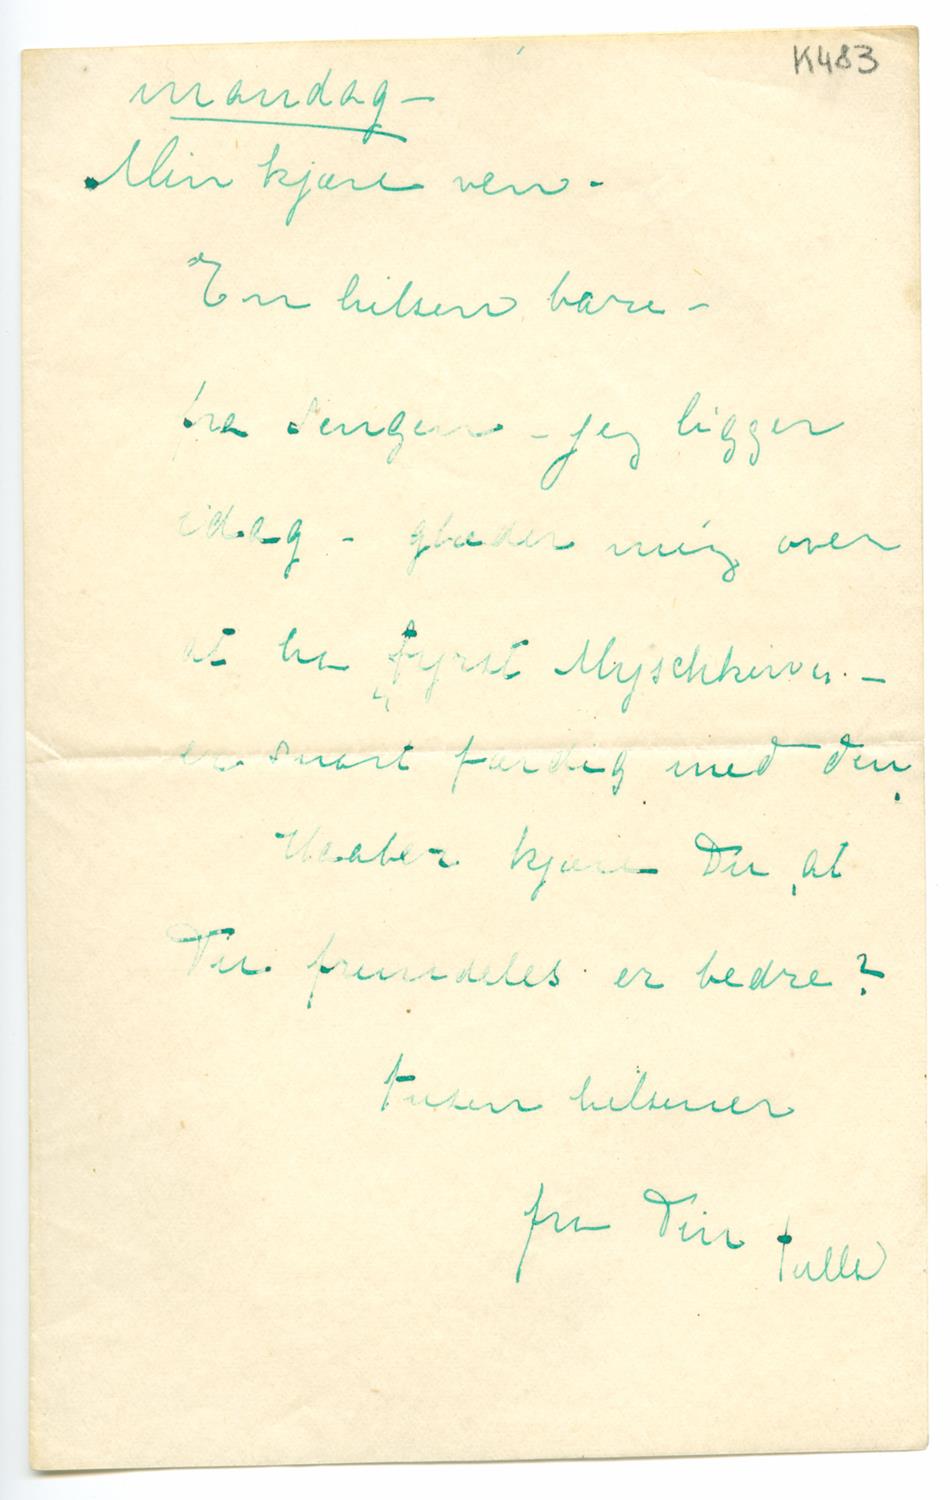 K483
mandag –
Min kjære ven –
En hilsen bare –
fra sengen – jeg ligger
idag – glæder mig over
at ha fyrst Myschkin –
er snart færdig med den,
Haaber kjære Du, at
Du fremdeles er bedre?
tusen hilsener
fra Din Tulla